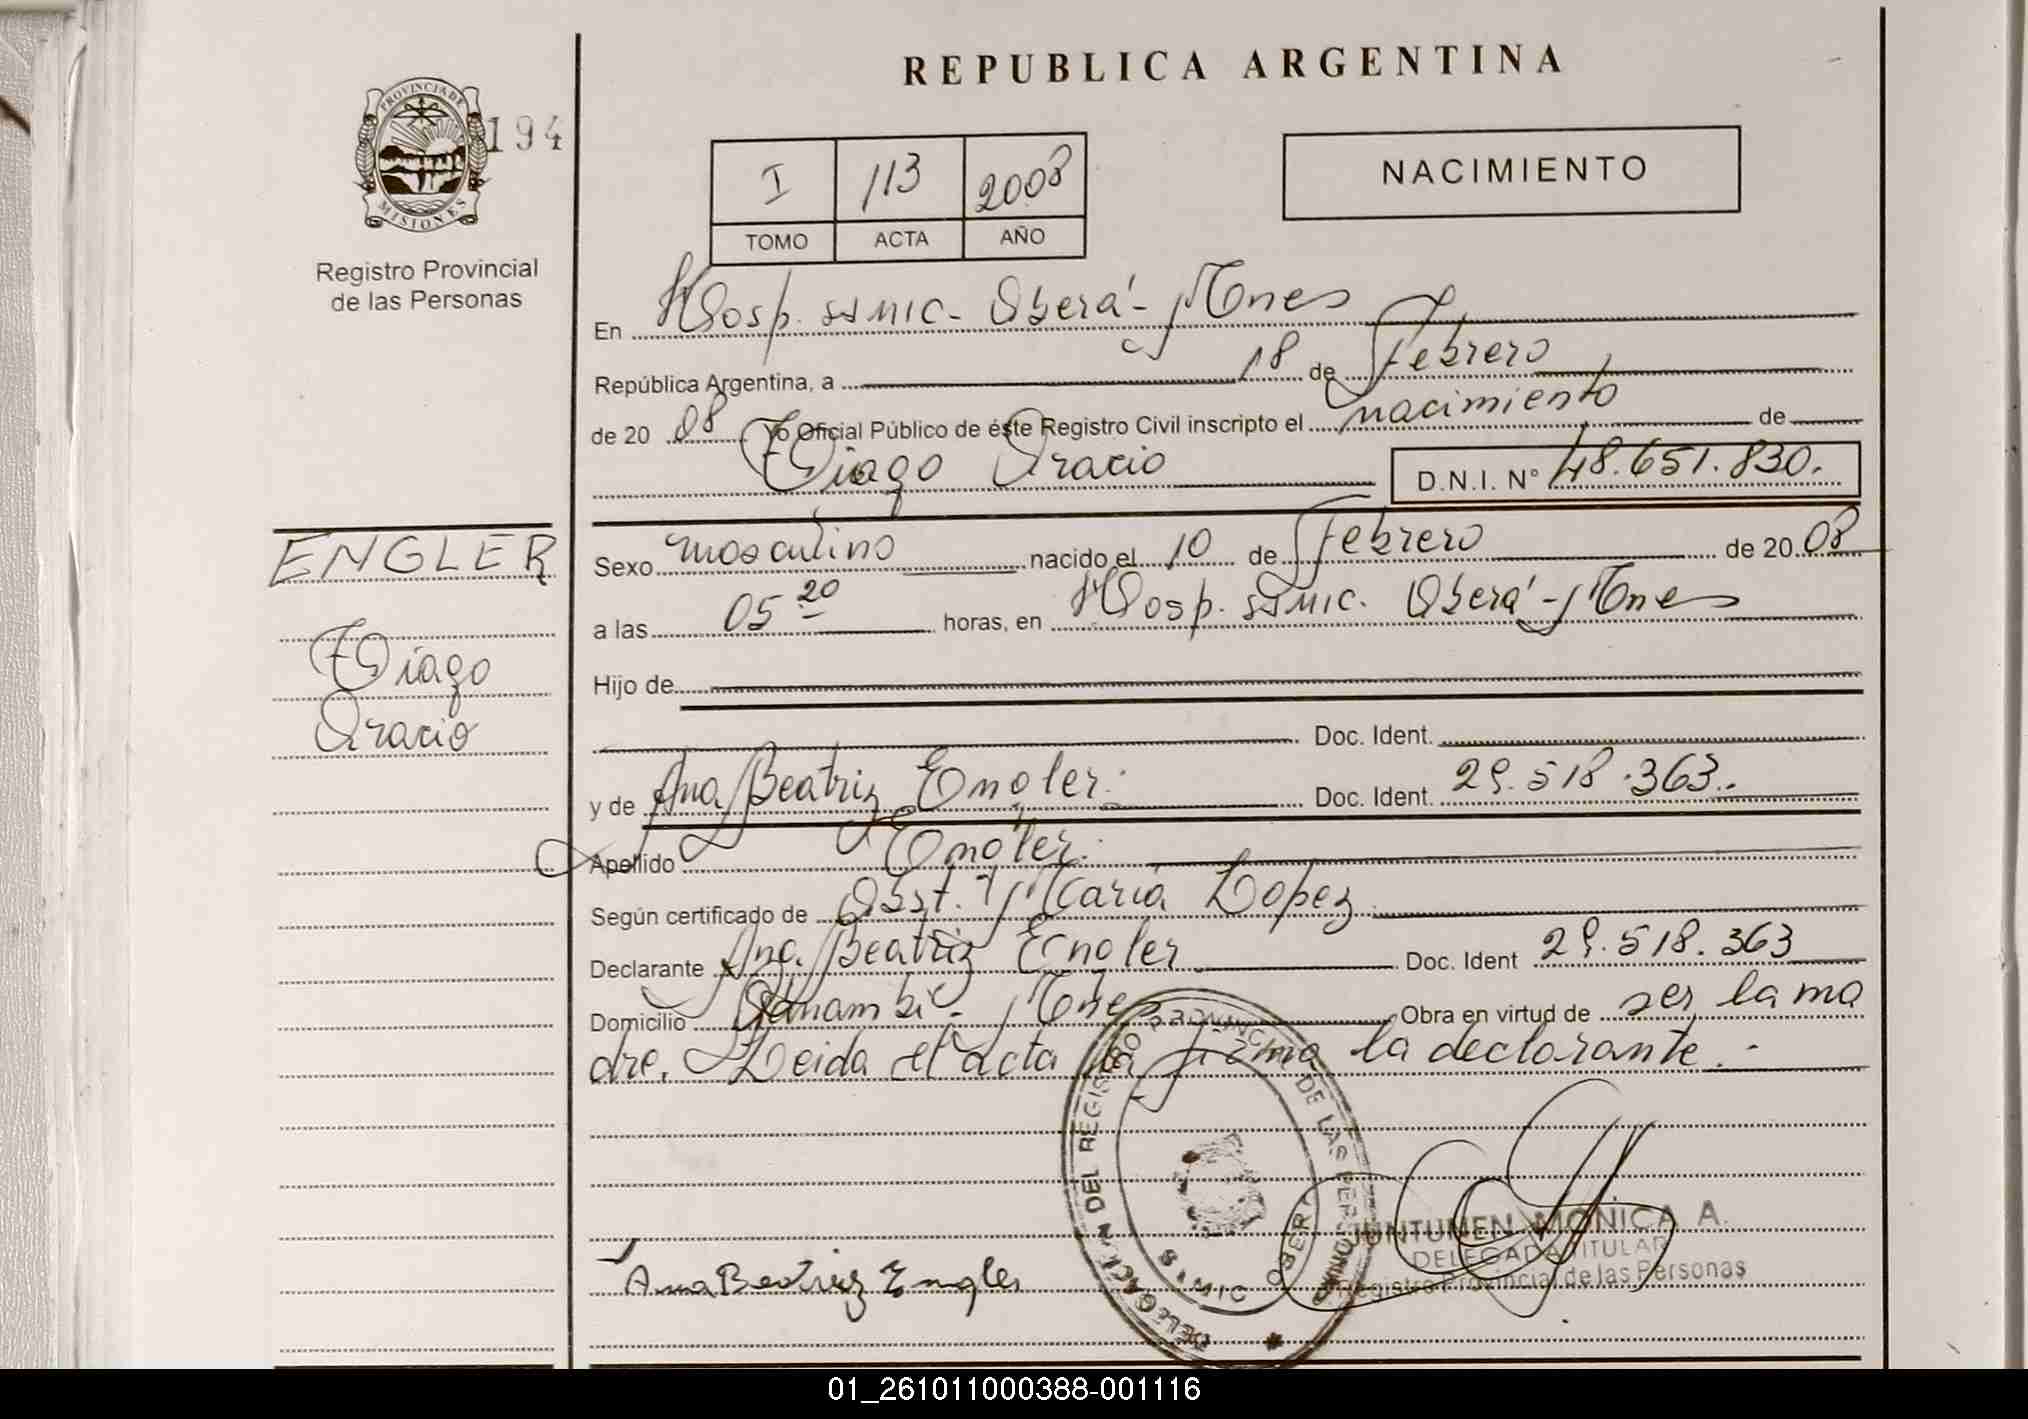 REPUBLICA ARGENTINA
PROVINCIA DE
MISIONES
194
Registro Provincial
de las Personas
I 113 2008
TOMO ACTA AÑO
NACIMIENTO
En Hosp. SSMIC- Oberá- Mnes
República Argentina, a 18 de Febrero
de 20 08 Yo Oficial Público de éste Registro Civil inscripto el nacimiento de
Tiago Oracio D.N.I. N° 48.651.830.
ENGLER
Tiago
Oracio
Sexo masculino nacido el 10 de Febrero de 20 08
a las 05 20 horas, en Hosp. SSMIC. Oberá- Mnes
Hijo de
Doc. Ident.
y de Ana Beatriz Engler. Doc. Ident. 29.518.363.
Apellido Engler.
Según certificado de Obst. Maria Lopez
Declarante Ana Beatriz Engler Doc. Ident 29.518.363
Domicilio Panambi- Mnes Obra en virtud de ser la ma
dre. Leida el acta la firma la declarante.-
DELEGACION DEL REGISTRO PROVINCIAL DE LAS PERSONAS
SSMIC OBERA
Ana Beatriz Engler
JUNTUNEN MONICA A.
DELEGADA TITULAR
Registro Provincial de las Personas
01_261011000388-001116